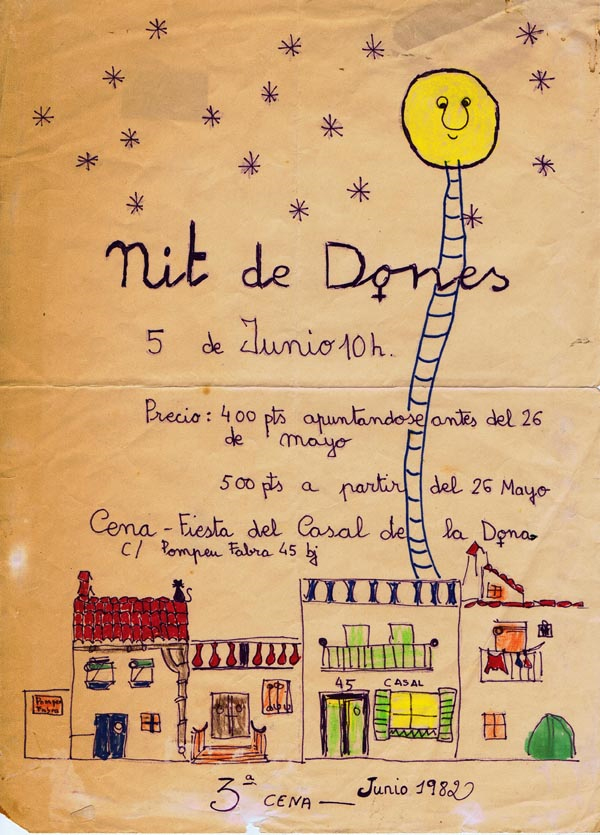 Nit de Dones
5 de Junio 10 h.
Precio: 400 pts apuntandose antes del 26
de mayo
500 pts a partir del 26 Mayo
Cena - Fiesta del Casal de la Dona
C/ Pompeu Fabra 45 bj
45 CASAL
Pompeu
Fabra
3ª CENA — Junio 1982